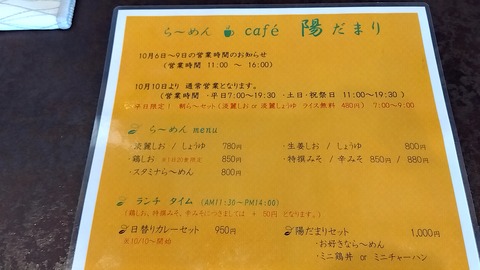 ら～めん café 陽だまり
10月6日～9日の営業時間のお知らせ
(営業時間 11:00 ～ 16:00)
10月10日より 通常営業となります。
(営業時間 ・平日7:00～19:30 ・土日・祝祭日 11:00～19:30 )
平日限定! 朝ら～セット(淡麗しお or 淡麗しょうゆ ライス無料 480円) 7:00～9:00
ら～めん menu
・淡麗しお / しょうゆ 780円
・生姜しお / しょうゆ 800円
・鶏しお 850円
・特撰みそ / 辛みそ 850円 / 880円
・スタミナら～めん 800円
ランチ タイム (AM11:30～PM14:00)
(鶏しお、特撰みそ、辛みそにつきましては + 50円 となります。)
日替りカレーセット 950円
※10/10～開始
陽だまりセット 1,000円
・お好きなら～めん
・ミニ鶏丼 or ミニチャーハン